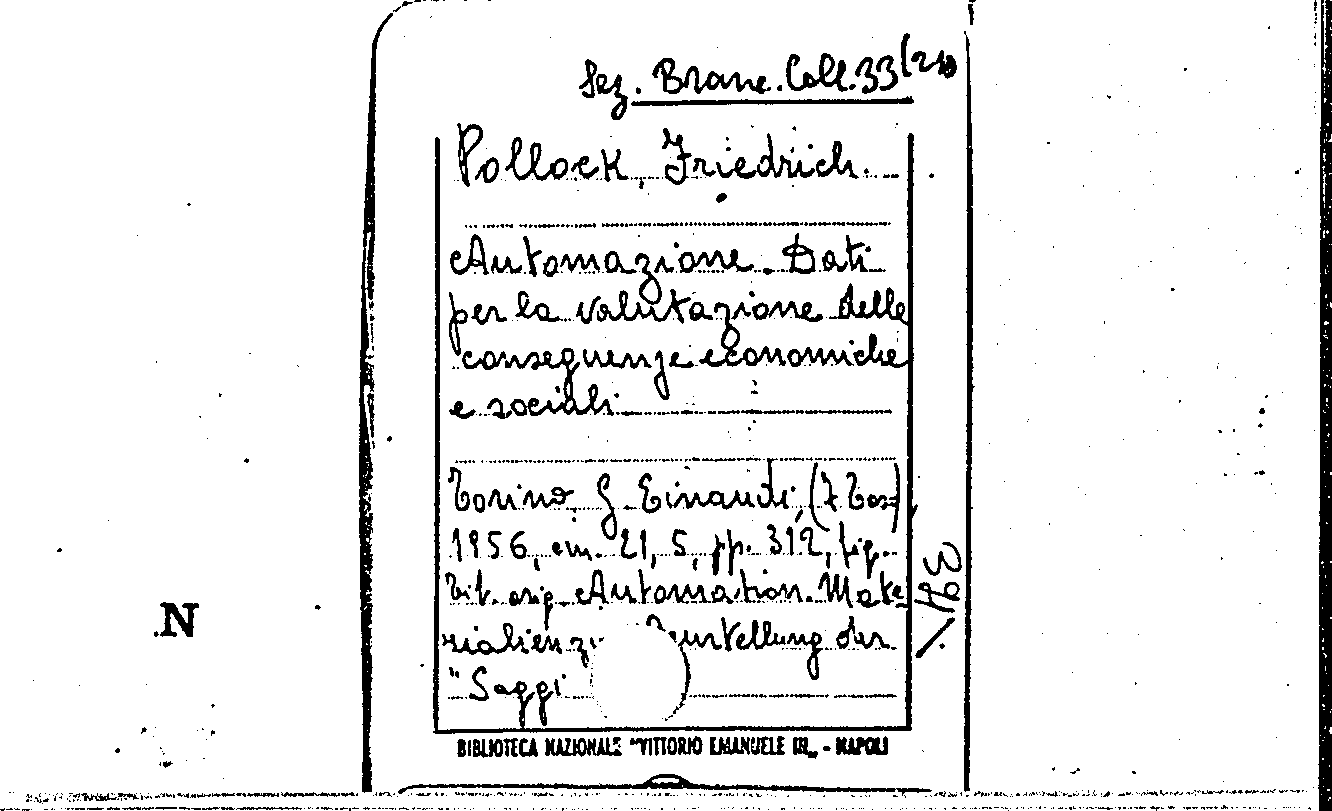 Sez. Branc. Coll. 33 (21)
Pollock, Friedrich.
Automazione. Dati
per la valutazione delle
conseguenze economiche
e sociali
Torino, G. Einaudi, (
1956, cm. 21,5, pp. 312, fig.
Tit. orig. Automation. Mate
rialien zu Beurteilung der
"Saggi
N
BIBLIOTECA NAZIONALE "VITTORIO EMANUELE III" - NAPOLI